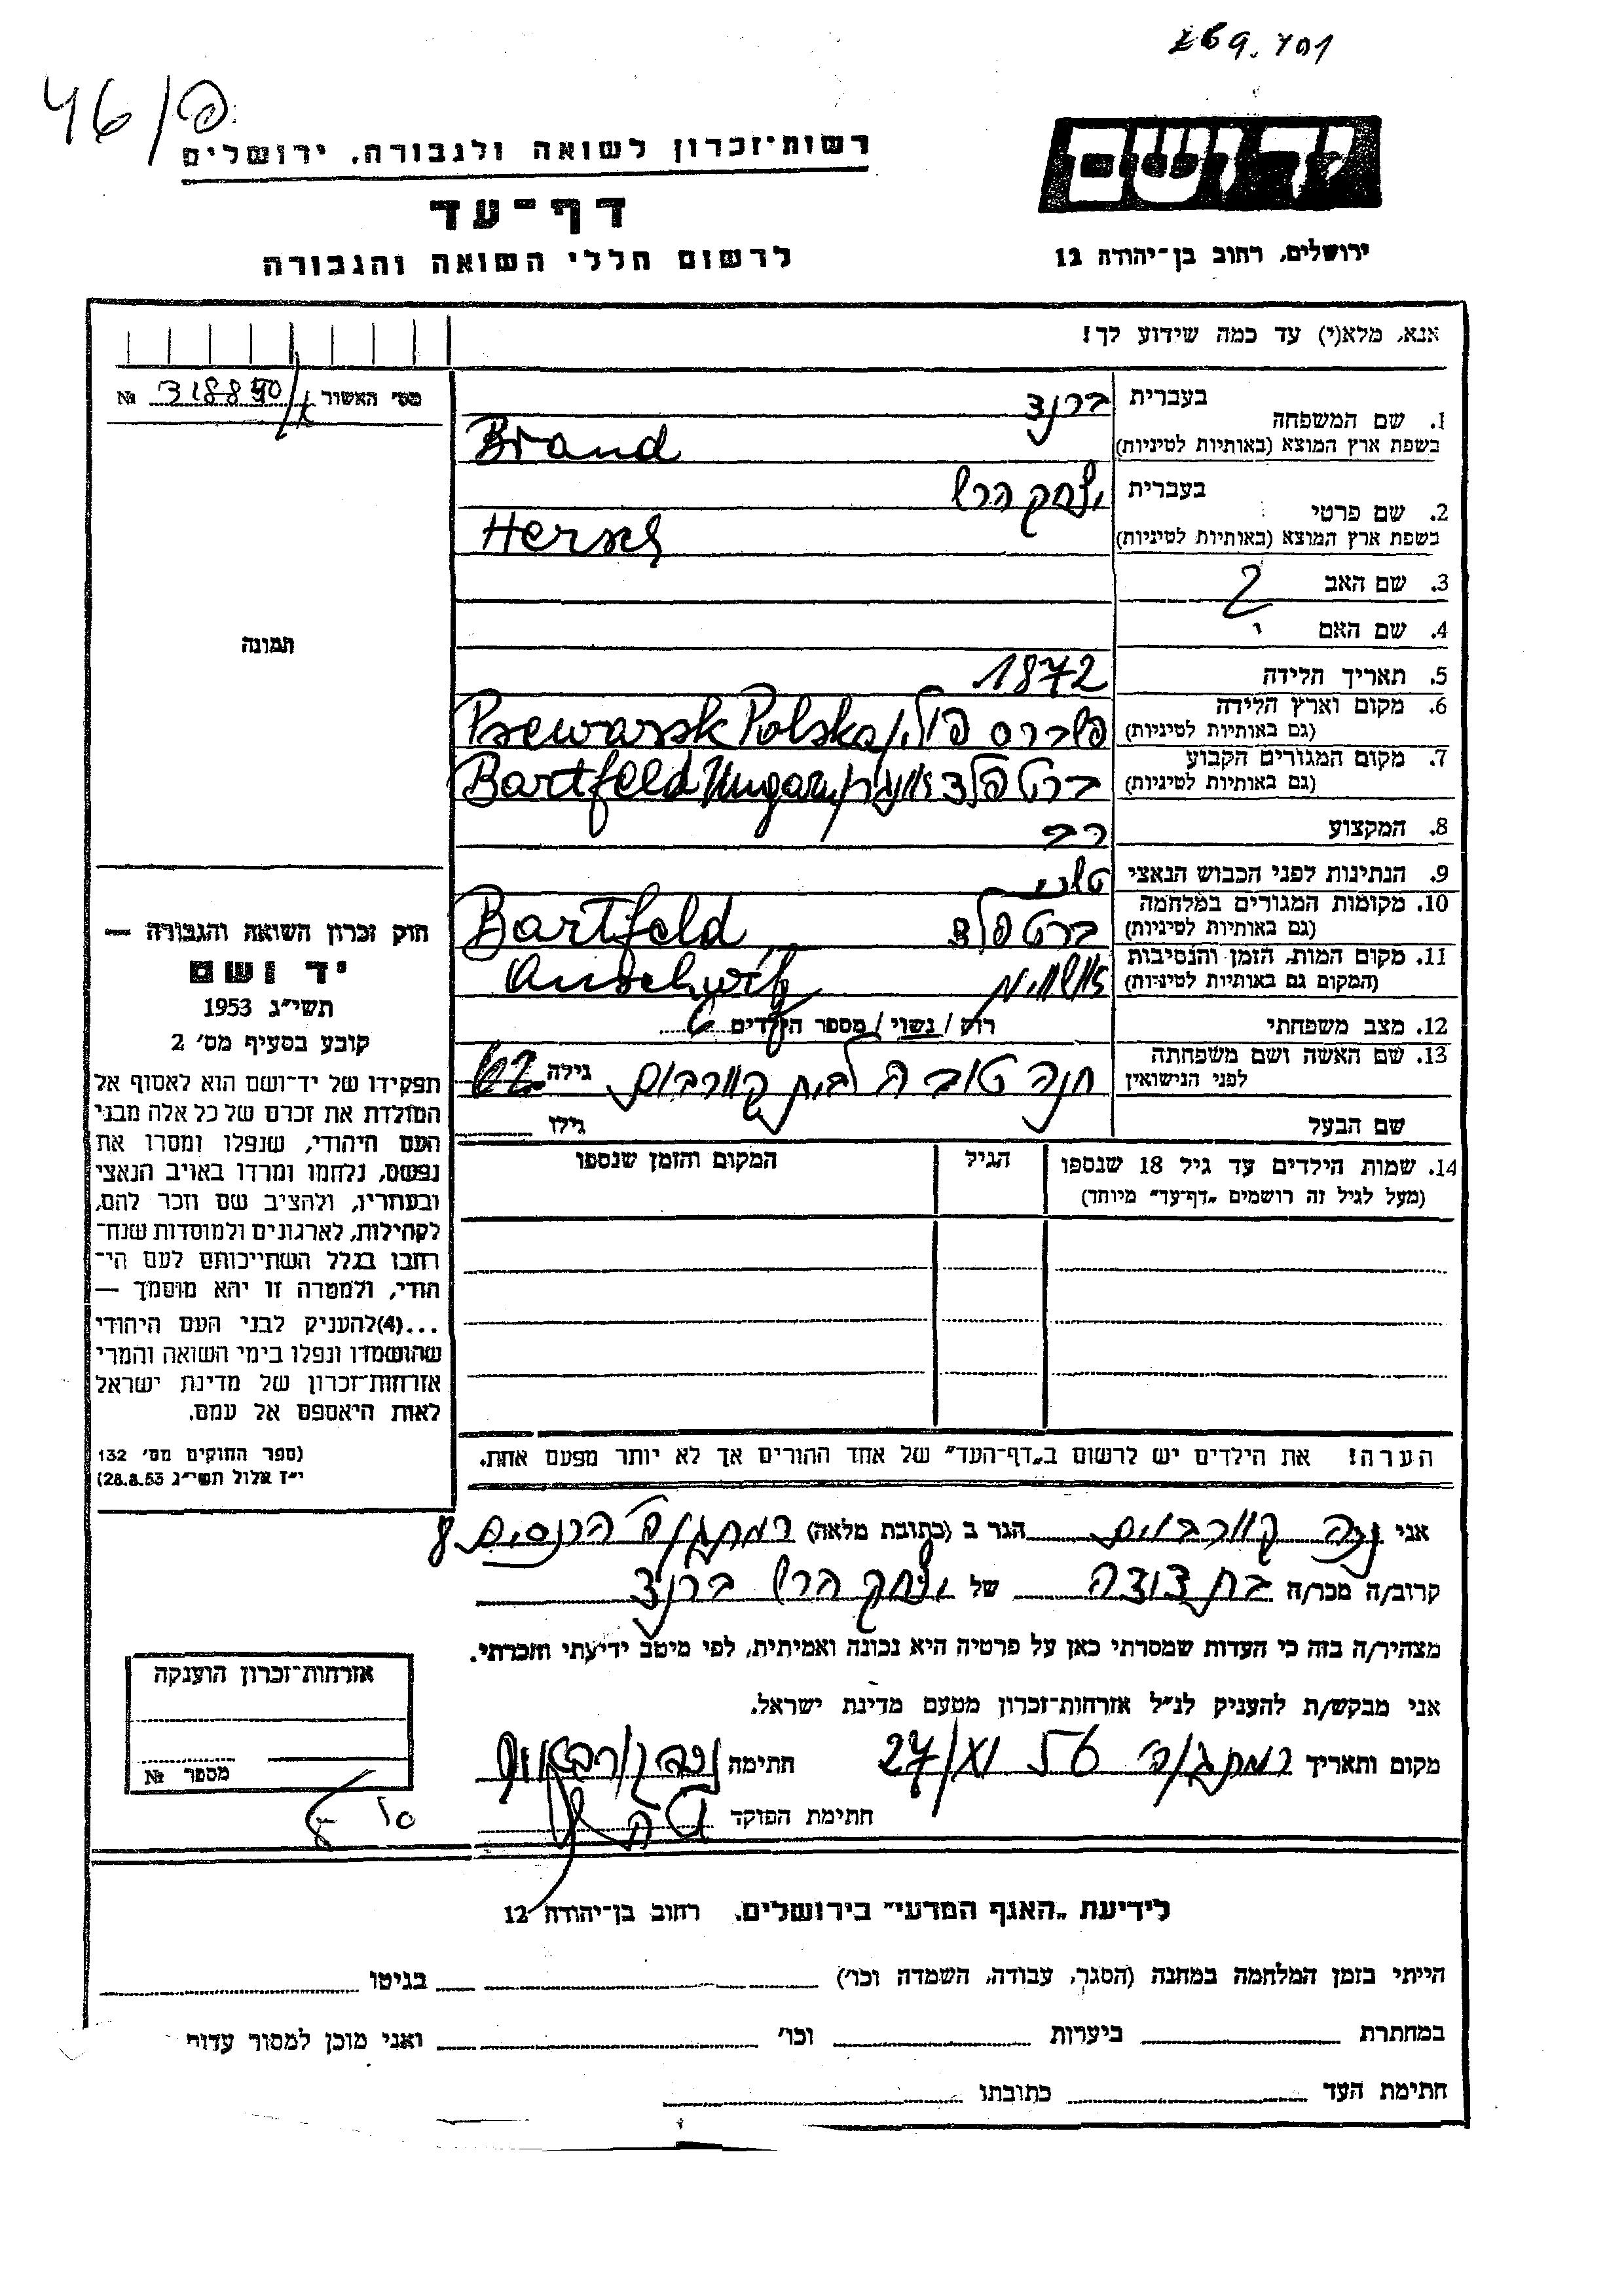 269.701
46/פ
יד ושם
רשות־זכרון לשואה ולגבורה, ירושלים
דף־עד
לרשום חללי השואה והגבורה
ירושלים, רחוב בן־יהודה 12
אנא, מלא(י) עד כמה שידוע לך!
מס׳ האשור № 318850
1. שם המשפחה בעברית ברנד
בשפת ארץ המוצא (באותיות לטיניות) Brand
2. שם פרטי בעברית יצחק הרש
בשפת ארץ המוצא (באותיות לטיניות) Hersch
3. שם האב ?
4. שם האם
תמונה
5. תאריך הלידה 1872
6. מקום וארץ הלידה
(גם באותיות לטיניות) פשברסק פולין Psewarsk Polska
7. מקום המגורים הקבוע
(גם באותיות לטיניות) ברטפלד Bartfeld Ungarn
8. המקצוע רב
9. הנתינות לפני הכבוש הנאצי
10. מקומות המגורים במלחמה
(גם באותיות לטיניות) ברטפלד Bartfeld
11. מקום המות, הזמן והנסיבות
(המקום גם באותיות לטיניות) Auschwitz
12. מצב משפחתי רוק / נשוי / מספר הילדים 6
13. שם האשה ושם משפחתה
לפני הנישואין חנה טובה לבית גילה 62
שם הבעל גילו
14. שמות הילדים עד גיל 18 שנספו
(מעל לגיל זה רושמים „דף־עד״ מיוחד)
הגיל
המקום והזמן שנספו
חוק זכרון השואה והגבורה —
יד ושם
תשי״ג 1953
קובע בסעיף מס׳ 2
תפקידו של יד־ושם הוא לאסוף אל
המולדת את זכרם של כל אלה מבני
העם היהודי, שנפלו ומסרו את
נפשם, נלחמו ומרדו באויב הנאצי
ובעוזריו, ולהציב שם וזכר להם,
לקהילות, לארגונים ולמוסדות שנח־
רבו בגלל השתייכותם לעם הי־
הודי, ולמטרה זו יהא מוסמך —
...(4)להעניק לבני העם היהודי
שהושמדו ונפלו בימי השואה והמרי
אזרחות־זכרון של מדינת ישראל
לאות היאספם אל עמם.
(ספר החוקים מס׳ 132
י״ז אלול תשי״ג 28.8.53)
הערה! את הילדים יש לרשום ב„דף־העד״ של אחד ההורים אך לא יותר מפעם אחת.
אני הגר ב (כתובת מלאה) רמת גן 8
קרוב/ה מכר/ה בת דודה של יצחק הרש ברנד
מצהיר/ה בזה כי העדות שמסרתי כאן על פרטיה היא נכונה ואמיתית, לפי מיטב ידיעתי והכרתי.
אני מבקש/ת להעניק לנ״ל אזרחות־זכרון מטעם מדינת ישראל.
מקום ותאריך רמת גן 27/XI 56 חתימה
חתימת הפוקד
אזרחות־זכרון הוענקה
מספר №
לידיעת „האגף המדעי״ בירושלים, רחוב בן־יהודה 12
הייתי בזמן המלחמה במחנה (הסגר, עבודה, השמדה וכו׳) בגיטו
במחתרת ביערות וכו׳ ואני מוכן למסור עדות
חתימת העד כתובתו